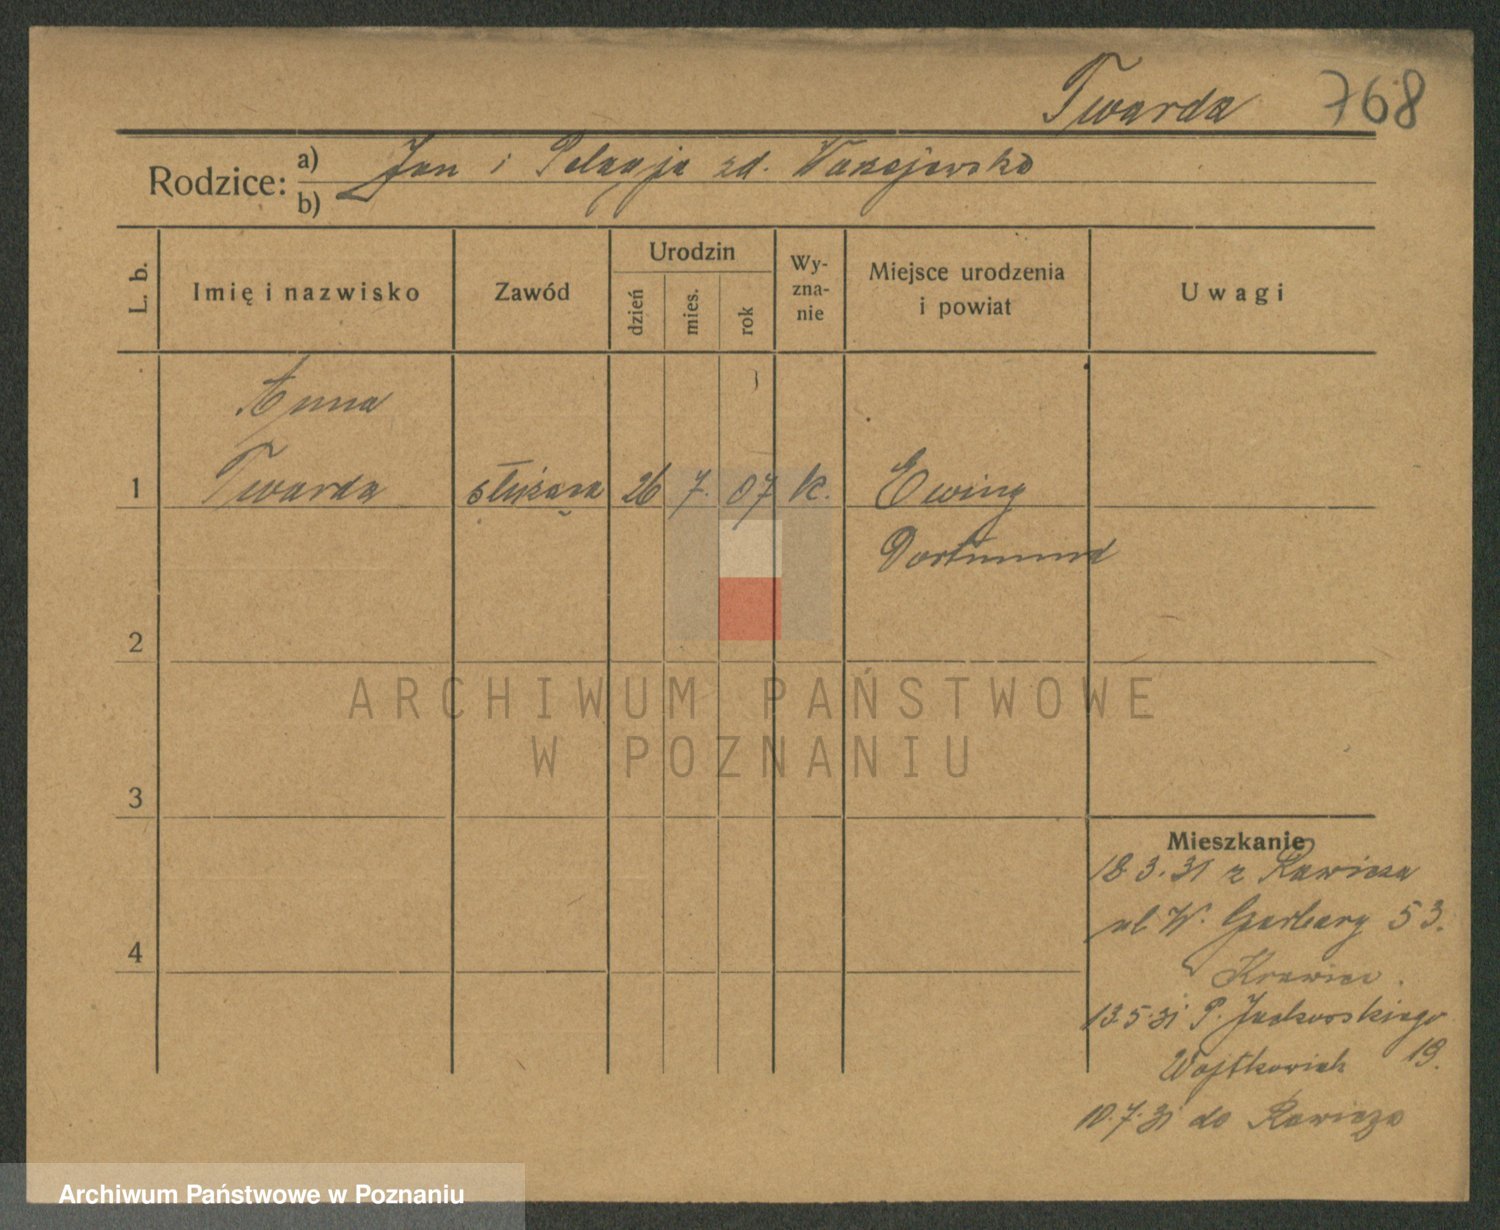 Twarda 768
Rodzice: a) Jan i Pelagja zd.
b)
L. b.
Imię i nazwisko
Zawód
Urodzin
dzień
mies.
rok
Wy-
zna-
nie
Miejsce urodzenia
i powiat
Uwagi
Anna
1 Twarda służąca 26 7. 07 k. Ewing
Dortmund
2
3
4
Mieszkanie
18.3.31 z Rawicza
ul. W. Garbary 53.
Krawiec.
13.5.31 P. Jackowskiego
Wojtkowiak 19.
10.7.31 do Rawicza
ARCHIWUM PAŃSTWOWE
W POZNANIU
Archiwum Państwowe w Poznaniu